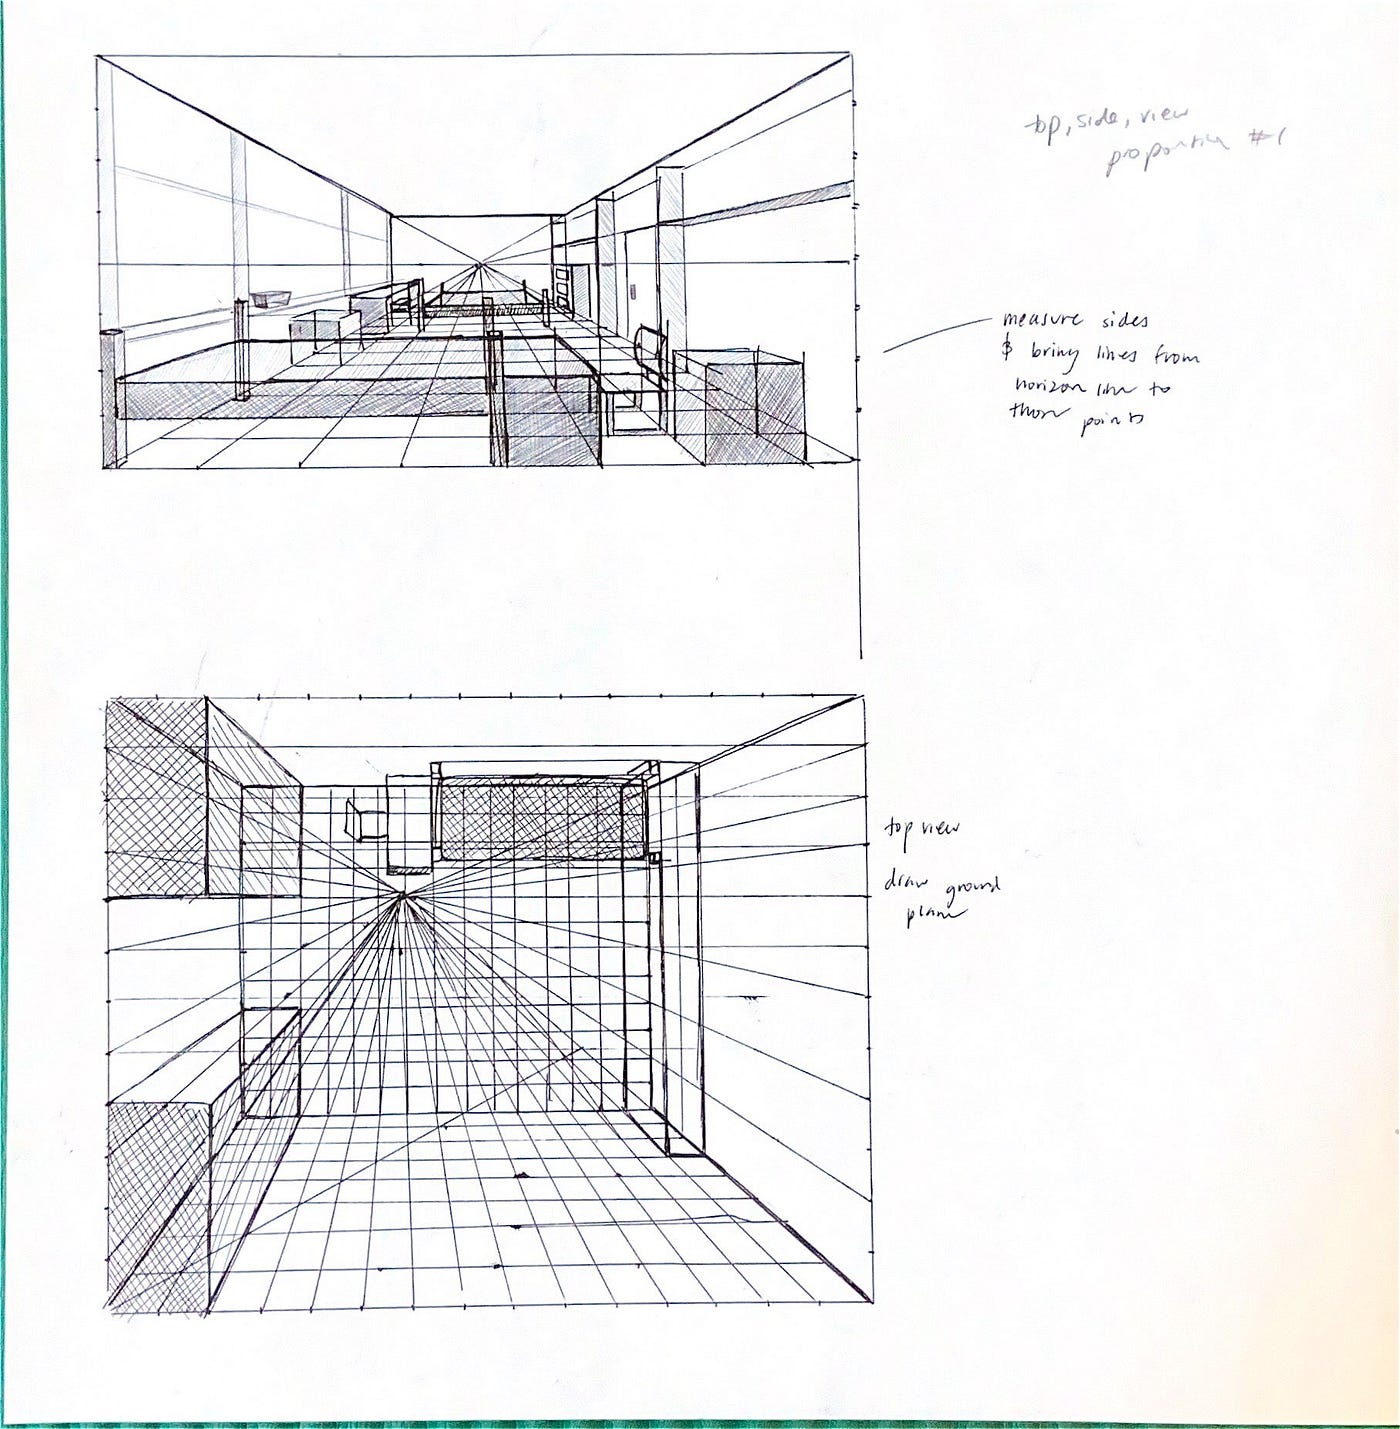 top, side, view
proportion #1
measure sides
& bring lines from
horizon line to
those points
top view
draw ground
plane